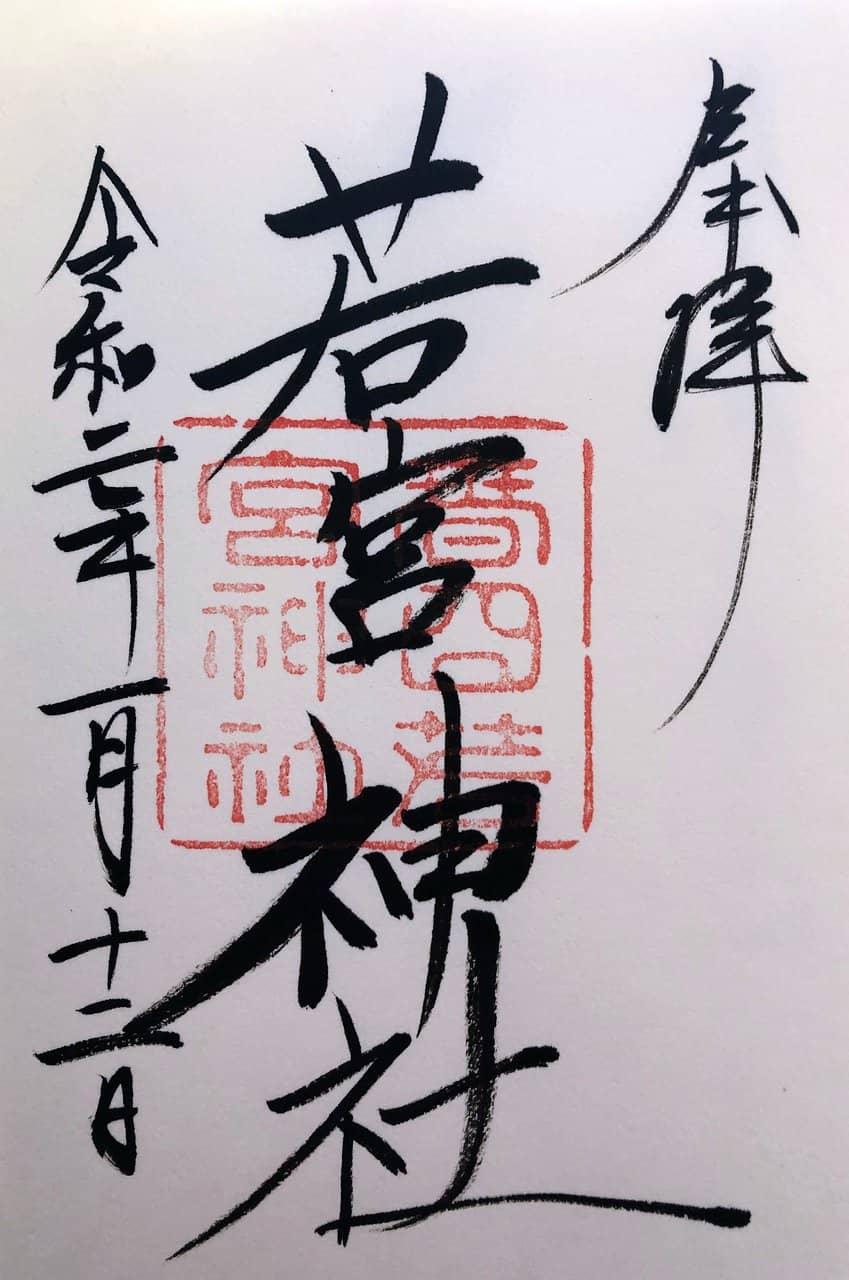 奉拝
若宮神社
四若
宮神社
令和二年一月十二日